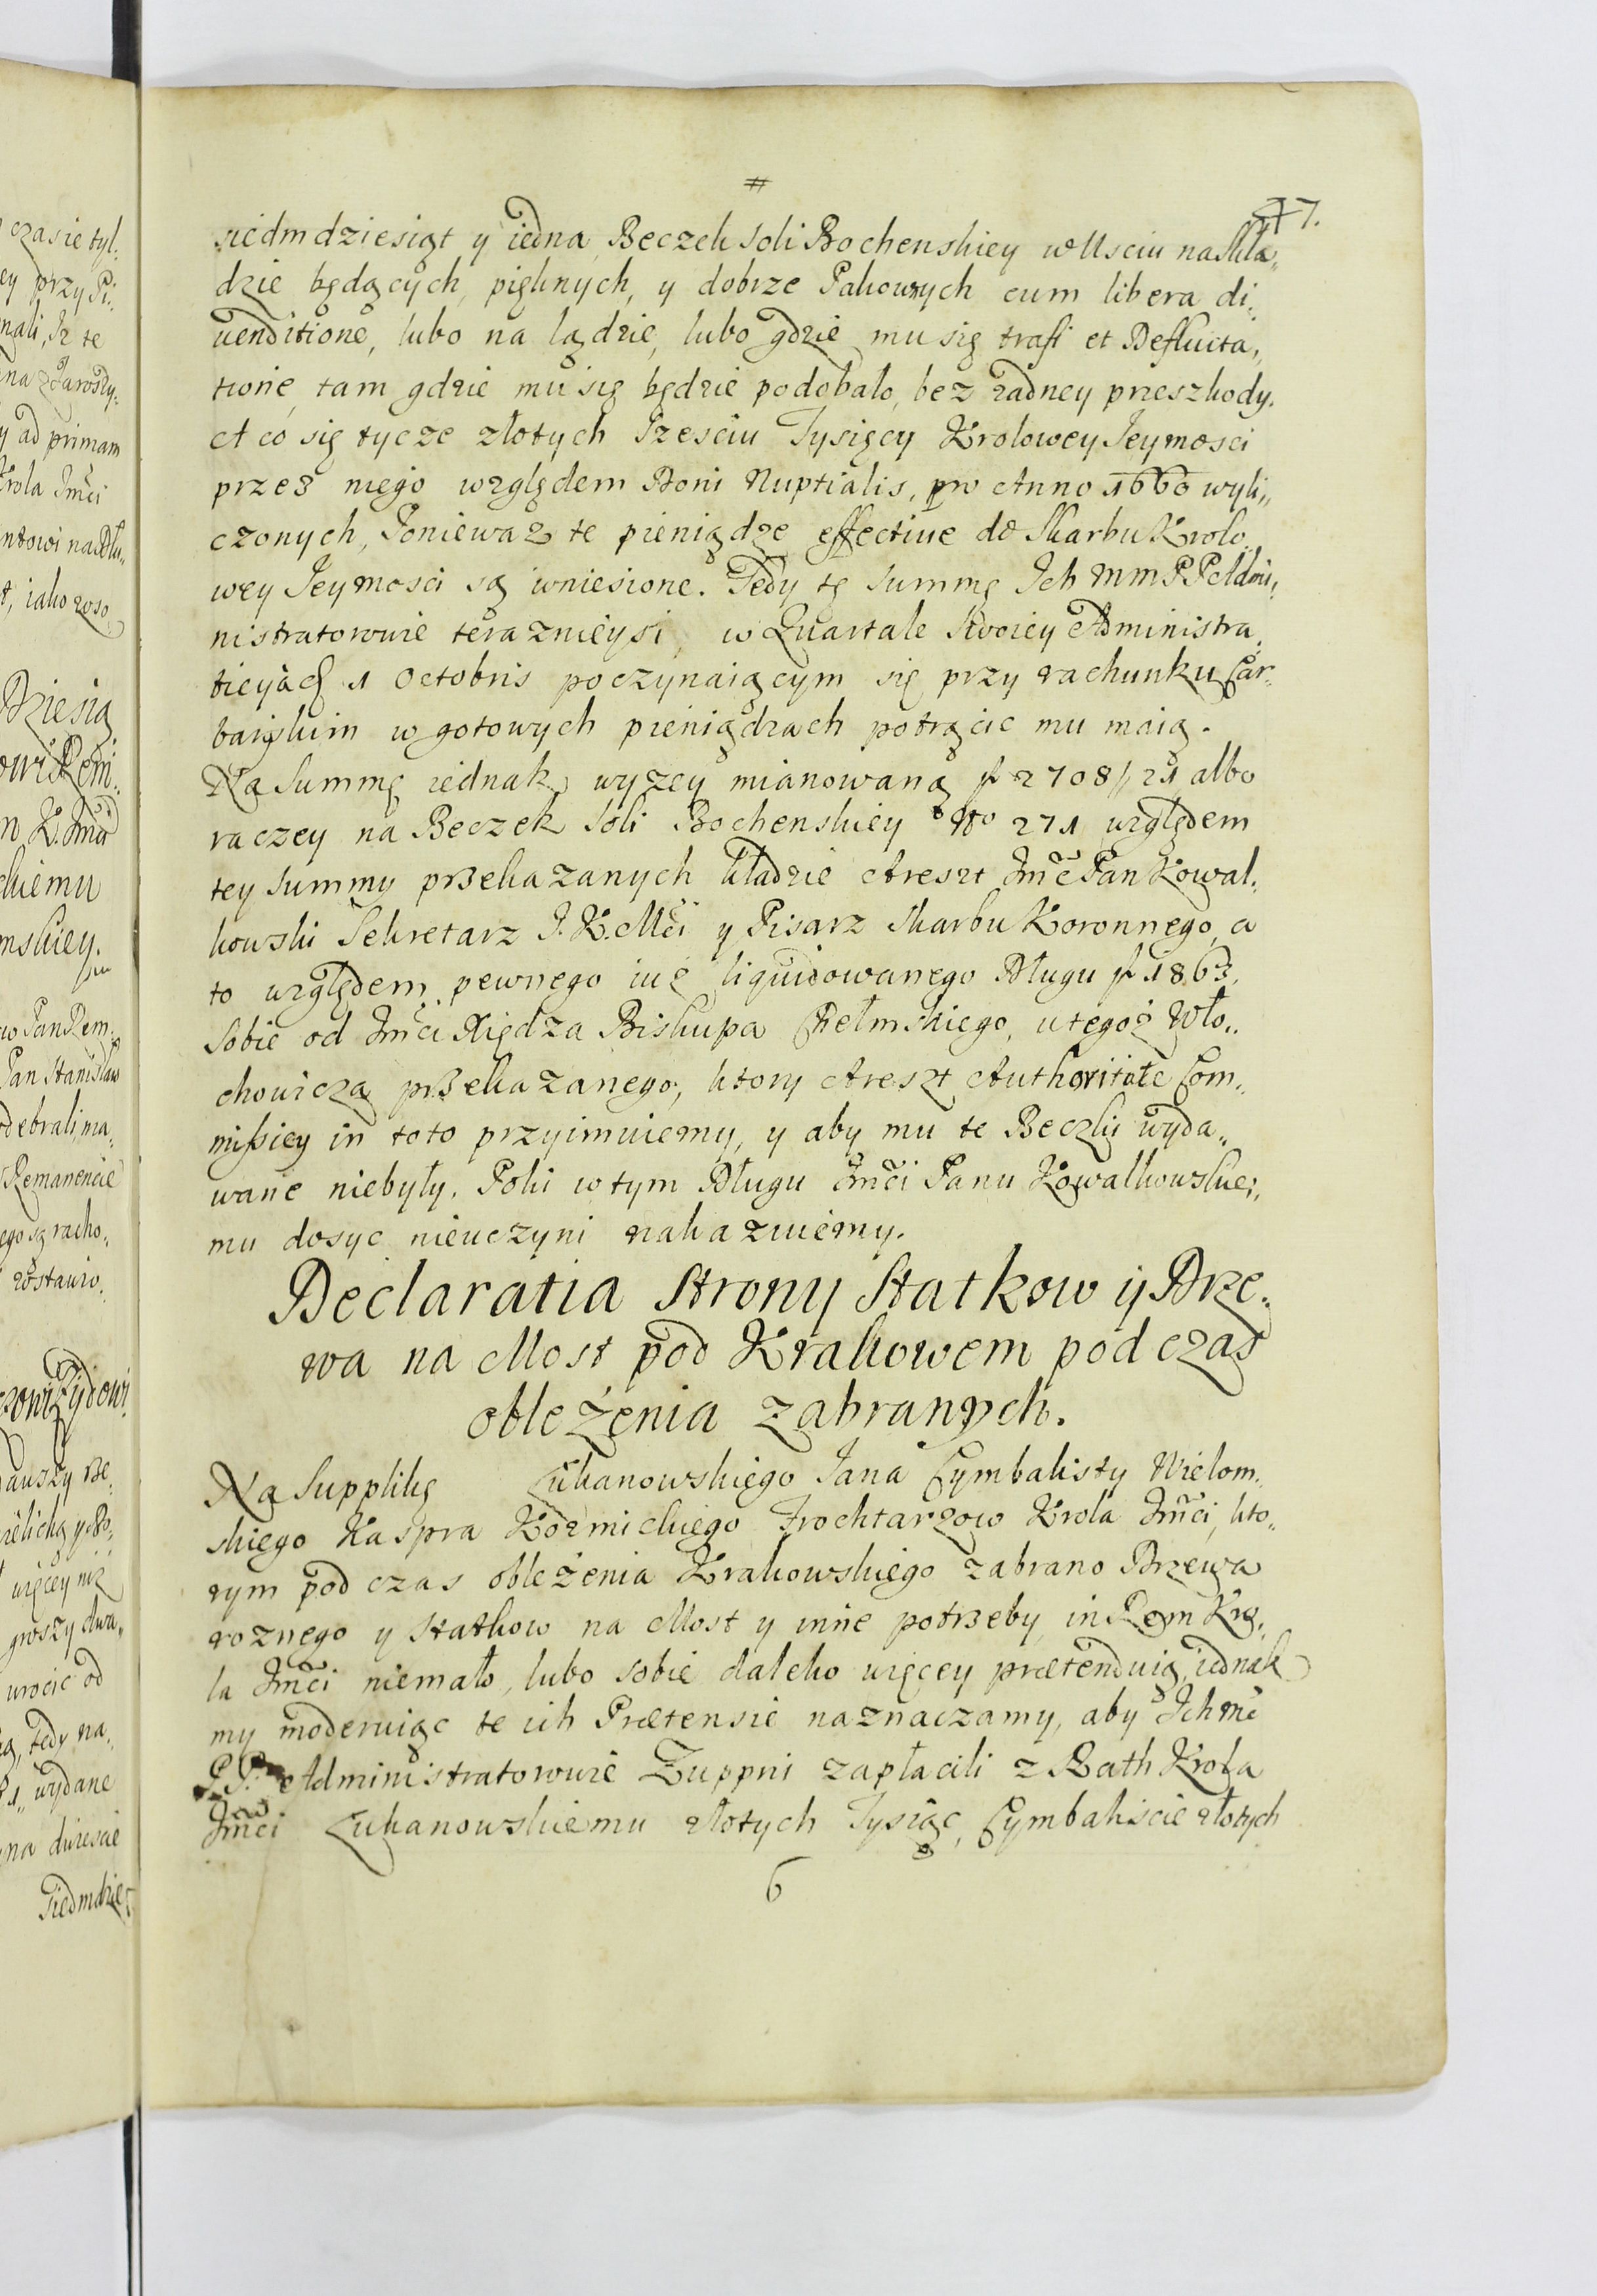 77.
siedmdziesiąt y iedna Beczek Soli Bochenskiey w Usciu na Skła„
dzie będących, pięknych, y dobrze Pakownych cum libera di„
uenditione, lubo na lądzie, lubo gdzie mu się trafi et Defluita„
tione, tam gdzie mu się będzie podobało, bez żadney przeszkody.
A co się tycze złotych Szesciu Tysięcy Krolowey Jeymosci
przez niego względem Doni Nuptialis, pro Anno 1660 wyli„
czonych, Poniewaz te pieniądze effectiue do Skarbu Krolo„
wey Jeymosci są wniesione. Tedy tę Summę Ich mm PP Admi„
nistratorowie teraznieysi, w Quartale Swoiey Administra„
tiey à 1 Octobris poczynaiącym się przy rachunku Kar„
barskim w gotowych pieniądzach potrącic mu maią.
Na Summę iednak wyzey mianowaną f 2708// 21 albo
raczey na Beczek Soli Bochenskiey No 271 względem
tey Summy przekazanych kładzie Areszt Jmc Pan Kowal„
kowski Sekretarz J. K. Mci y Pisarz Skarbu Koronnego, a
to względem pewnego iuż liquidowanego Długu f 1863,
Sobie od Jmci Xiędza Biskupa Chełmskiego, u tegoż Wło„
chowicza przekazanego, ktory Areszt Authoritate Com„
missiey in toto przyimuiemy, y aby mu te Beczki wyda„
wane niebyły. Poki w tym Długu Jmci Panu Kowalkowskie„
mu dosyc nieuczyni nakazuiemy.
Declaratia Strony Statkow y Drze„
wa na Most pod Krakowem pod czas
oblężenia zabranych.
Na Supplikę Łukanowskiego Jana Cymbalisty Wielom„
skiego Kaspra Kozmickiego Frochtarzow Krola Jmci, kto„
rym pod czas oblężenia Krakowskiego zabrano Drzewa
roznego y Statkow na Most y inne potrzeby in Rem Kro„
la Jmci niemało, lubo sobie daleko więcey prætenduią, iednak
my moderuiąc te ich Prætensie naznaczamy, aby Ichmć
P.P. Administratorowie Zuppni zapłacili z Rath Krola
Jmci Łukanowskiemu złotych Tysiąc, Cymbaliscie złotych
6